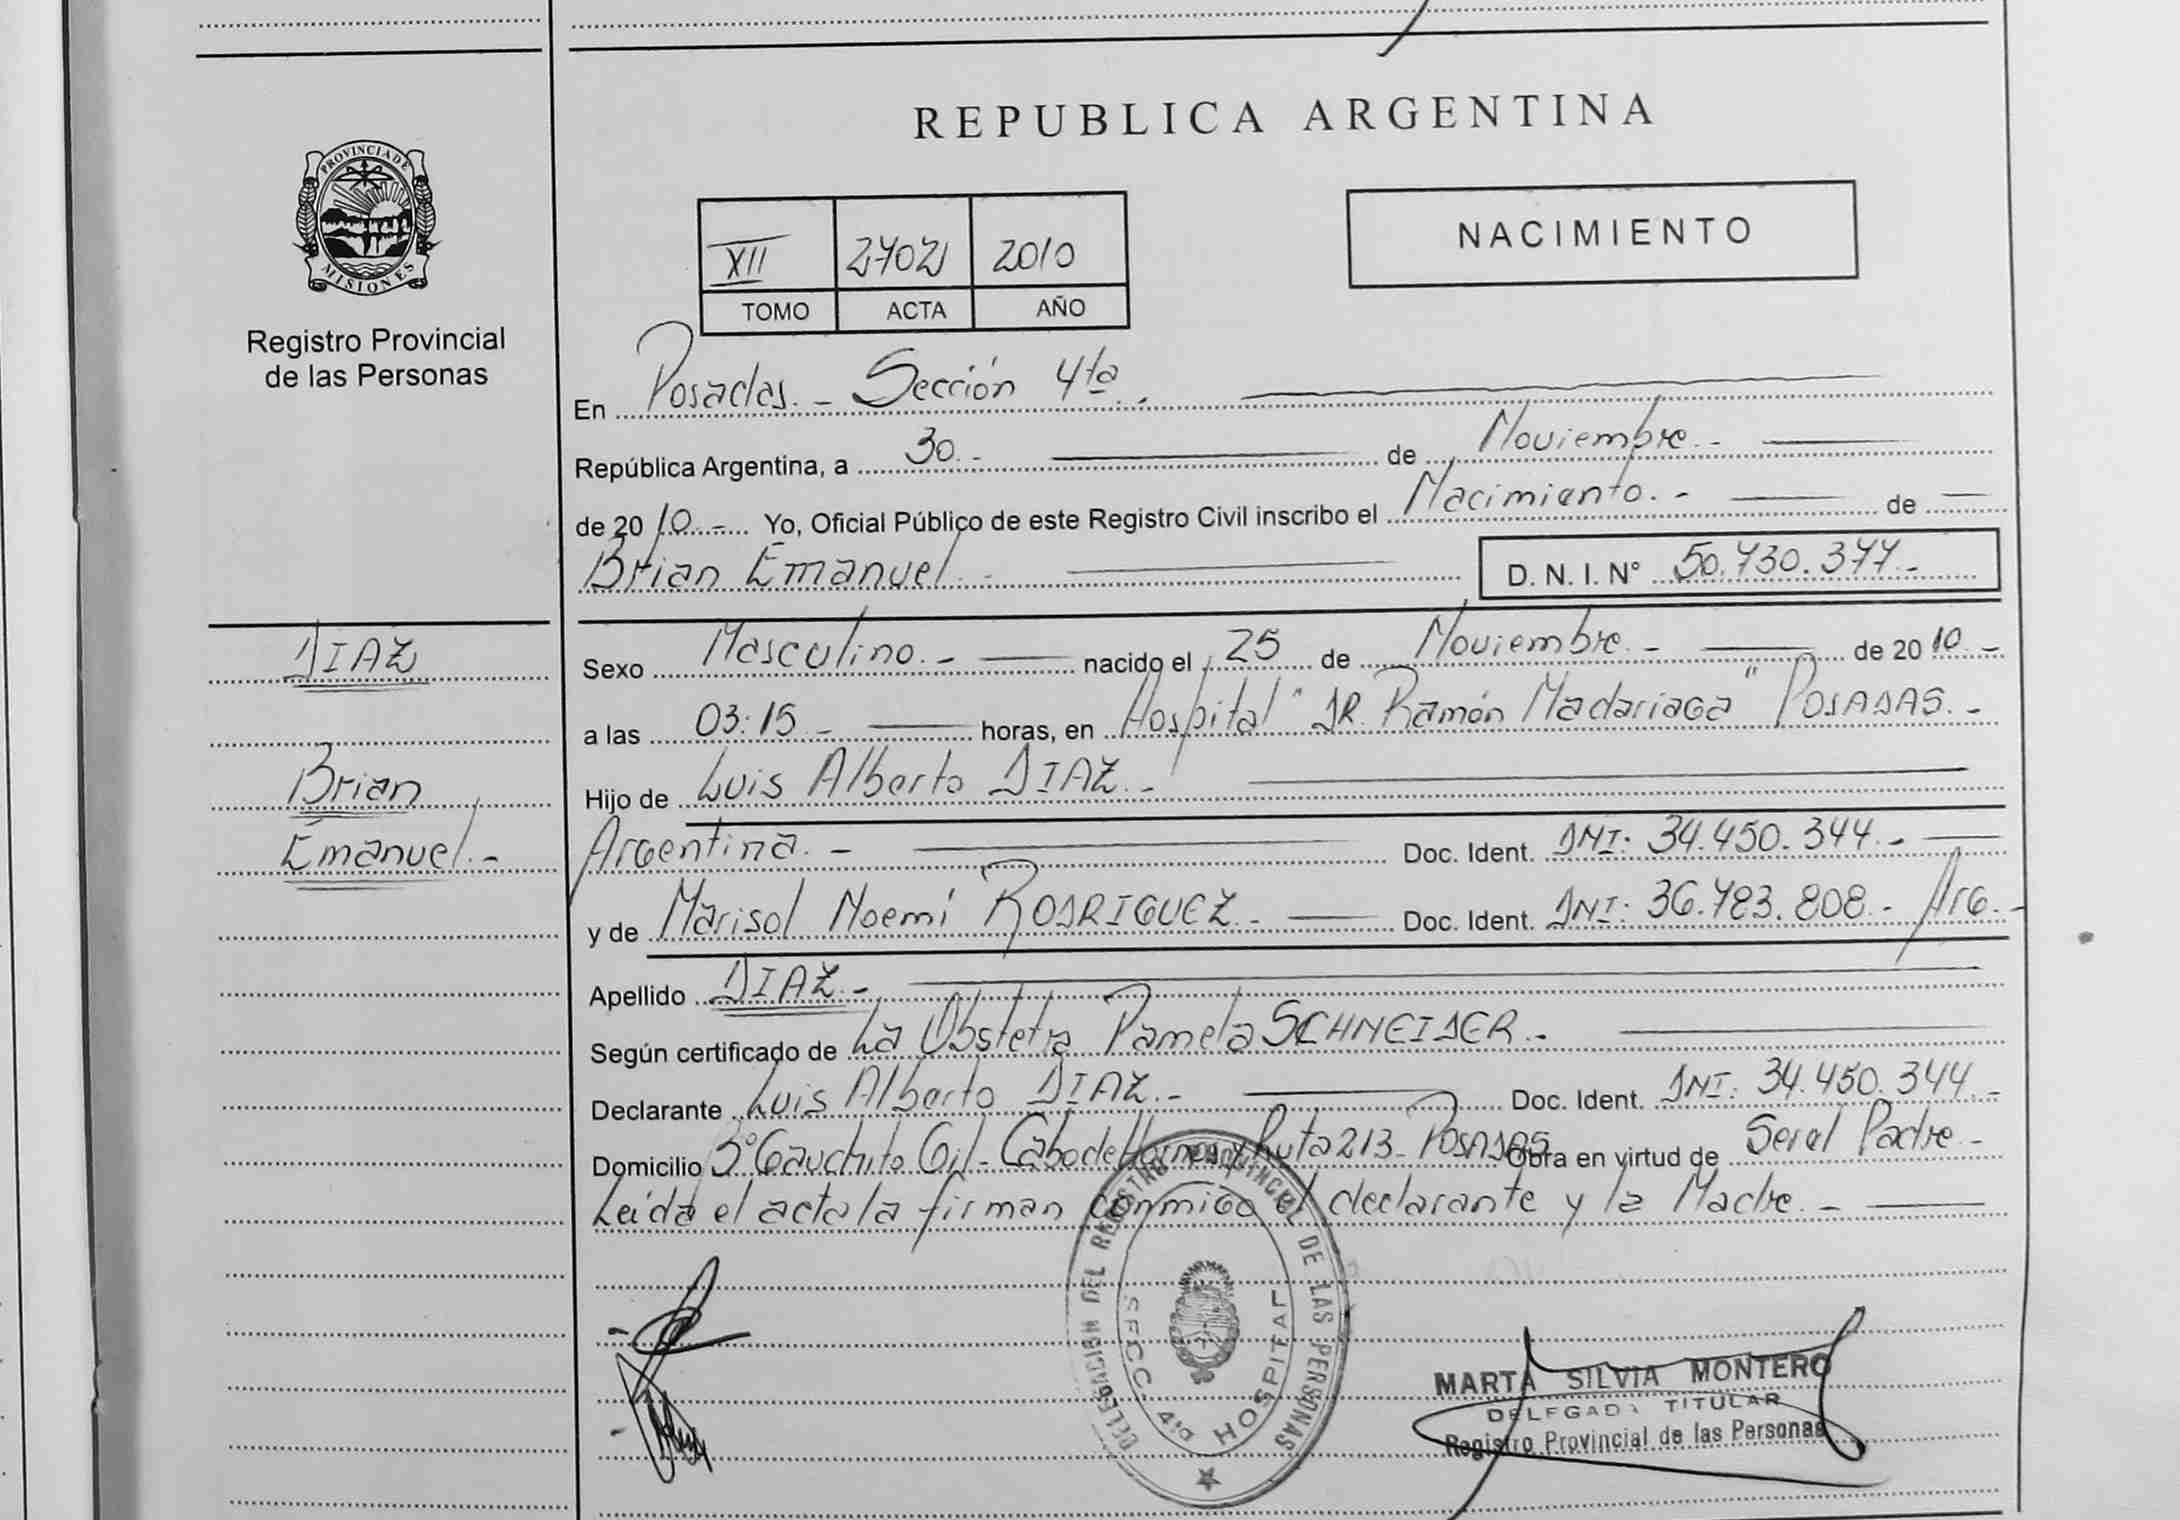 REPUBLICA ARGENTINA
PROVINCIA DE MISIONES
Registro Provincial
de las Personas
NACIMIENTO
XII 2702 2010
TOMO ACTA AÑO
En Posadas. - Sección 4ta. -
República Argentina, a 30. - de Noviembre. -
de 2010. - Yo, Oficial Público de este Registro Civil inscribo el Nacimiento. - de
Brian Emanuel. - D. N. I. N° 50.730.377. -
DIAZ
Brian
Emanuel. -
Sexo Masculino. - nacido el 25 de Noviembre. - de 2010. -
a las 03:15. - horas, en Hospital "DR. Ramón Madariaga" POSADAS. -
Hijo de Luis Alberto DIAZ. -
Argentina. - Doc. Ident. DNI: 34.450.344. -
y de Marisol Noemí RODRIGUEZ. - Doc. Ident. DNI: 36.783.808. - Arg. -
Apellido DIAZ. -
Según certificado de La Obstetra Pamela SCHNEIDER. -
Declarante Luis Alberto DIAZ. - Doc. Ident. DNI: 34.450.344. -
Domicilio B° Gauchito Gil - Cabo de Hornos y Ruta 213 - POSADAS Obra en virtud de Ser el Padre. -
Leída el acta la firman conmigo el declarante y la Madre. -
DELEGACION DEL REGISTRO PROVINCIAL DE LAS PERSONAS
SECC. 4ta HOSPITAL
MARTA SILVIA MONTERO
DELEGADA TITULAR
Registro Provincial de las Personas